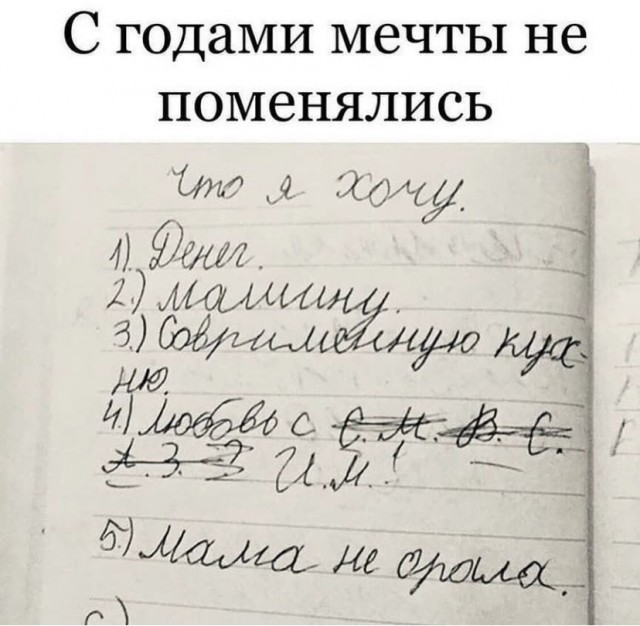 С годами мечты не
поменялись
Что я хочу.
1). Денег.
2.) машину.
3.) Совримённую кух-
ню.
4.) Любовь с Е. М. В. С.
А. З. Э И.М.!
5.) Мама не орала.